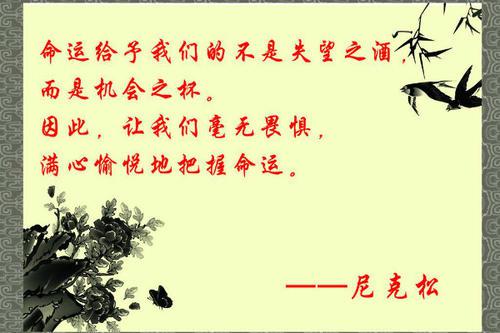 命运给予我们的不是失望之酒，
而是机会之杯。
因此，让我们毫无畏惧，
满心愉悦地把握命运。
——尼克松